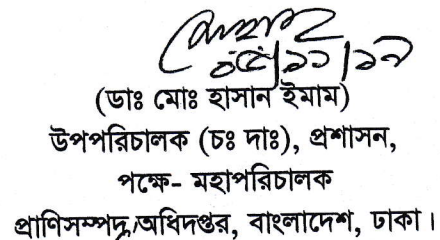 ০৫/১১/১৭
(ডাঃ মোঃ হাসান ইমাম)
উপপরিচালক (চঃ দাঃ), প্রশাসন,
পক্ষে- মহাপরিচালক
প্রাণিসম্পদ অধিদপ্তর, বাংলাদেশ, ঢাকা।